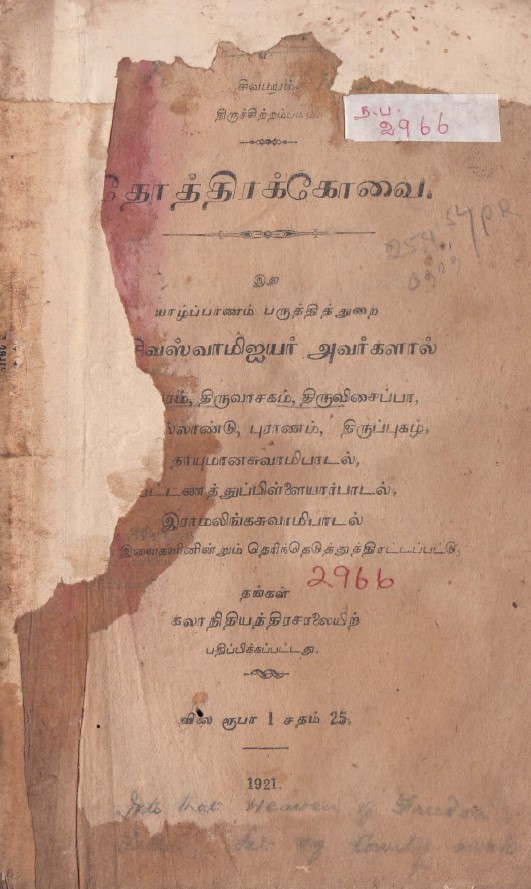 உ
சிவமயம்.
திருச்சிற்றம்பலம்.
ந.ப.
2966
தோத்திரக்கோவை.
இஃது
யாழ்ப்பாணம் பருத்தித்துறை
சிவஸ்வாமிஐயர் அவர்களால்
ரம், திருவாசகம், திருவிசைப்பா,
ல்லாண்டு, புராணம், திருப்புகழ்,
தாயுமானசுவாமிபாடல்,
பட்டணத்துப்பிள்ளையார்பாடல்,
இராமலிங்கசுவாமிபாடல்
இவைகளினின்றும் தெரிந்தெடுத்துத்திரட்டப்பட்டு,
2966
தங்கள்
கலாநிதியந்திரசாலையிற்
பதிப்பிக்கப்பட்டது.
விலை ரூபா 1 சதம் 25.
1921.
Into that Heaven of Freedom